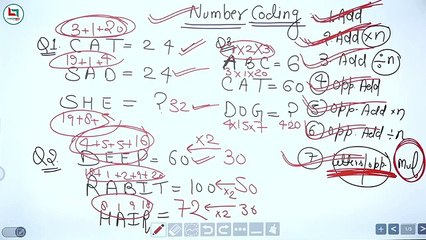 Number Coding
3+1+20
Q1. CAT = 24
19+1+4
SAD = 24
SHE = ? 32
19+8+5
4+5+5+16
Q2. DEEP = 60 ×2 30
18+1+2+9+20
RABIT = 100 ×2 50
8 1 9 18
HAIR = 72 ×2 36
Q3.
1×2×3
ABC = 6
3×1×20
CAT = 60
DOG = ?
4×15×7 420
1 Add
2 Add (×n)
3 Add ÷n
4 Opp Add
5 Opp. Add ×n
6 Opp. Add ÷n
7 Letters/opp Mul
1/3